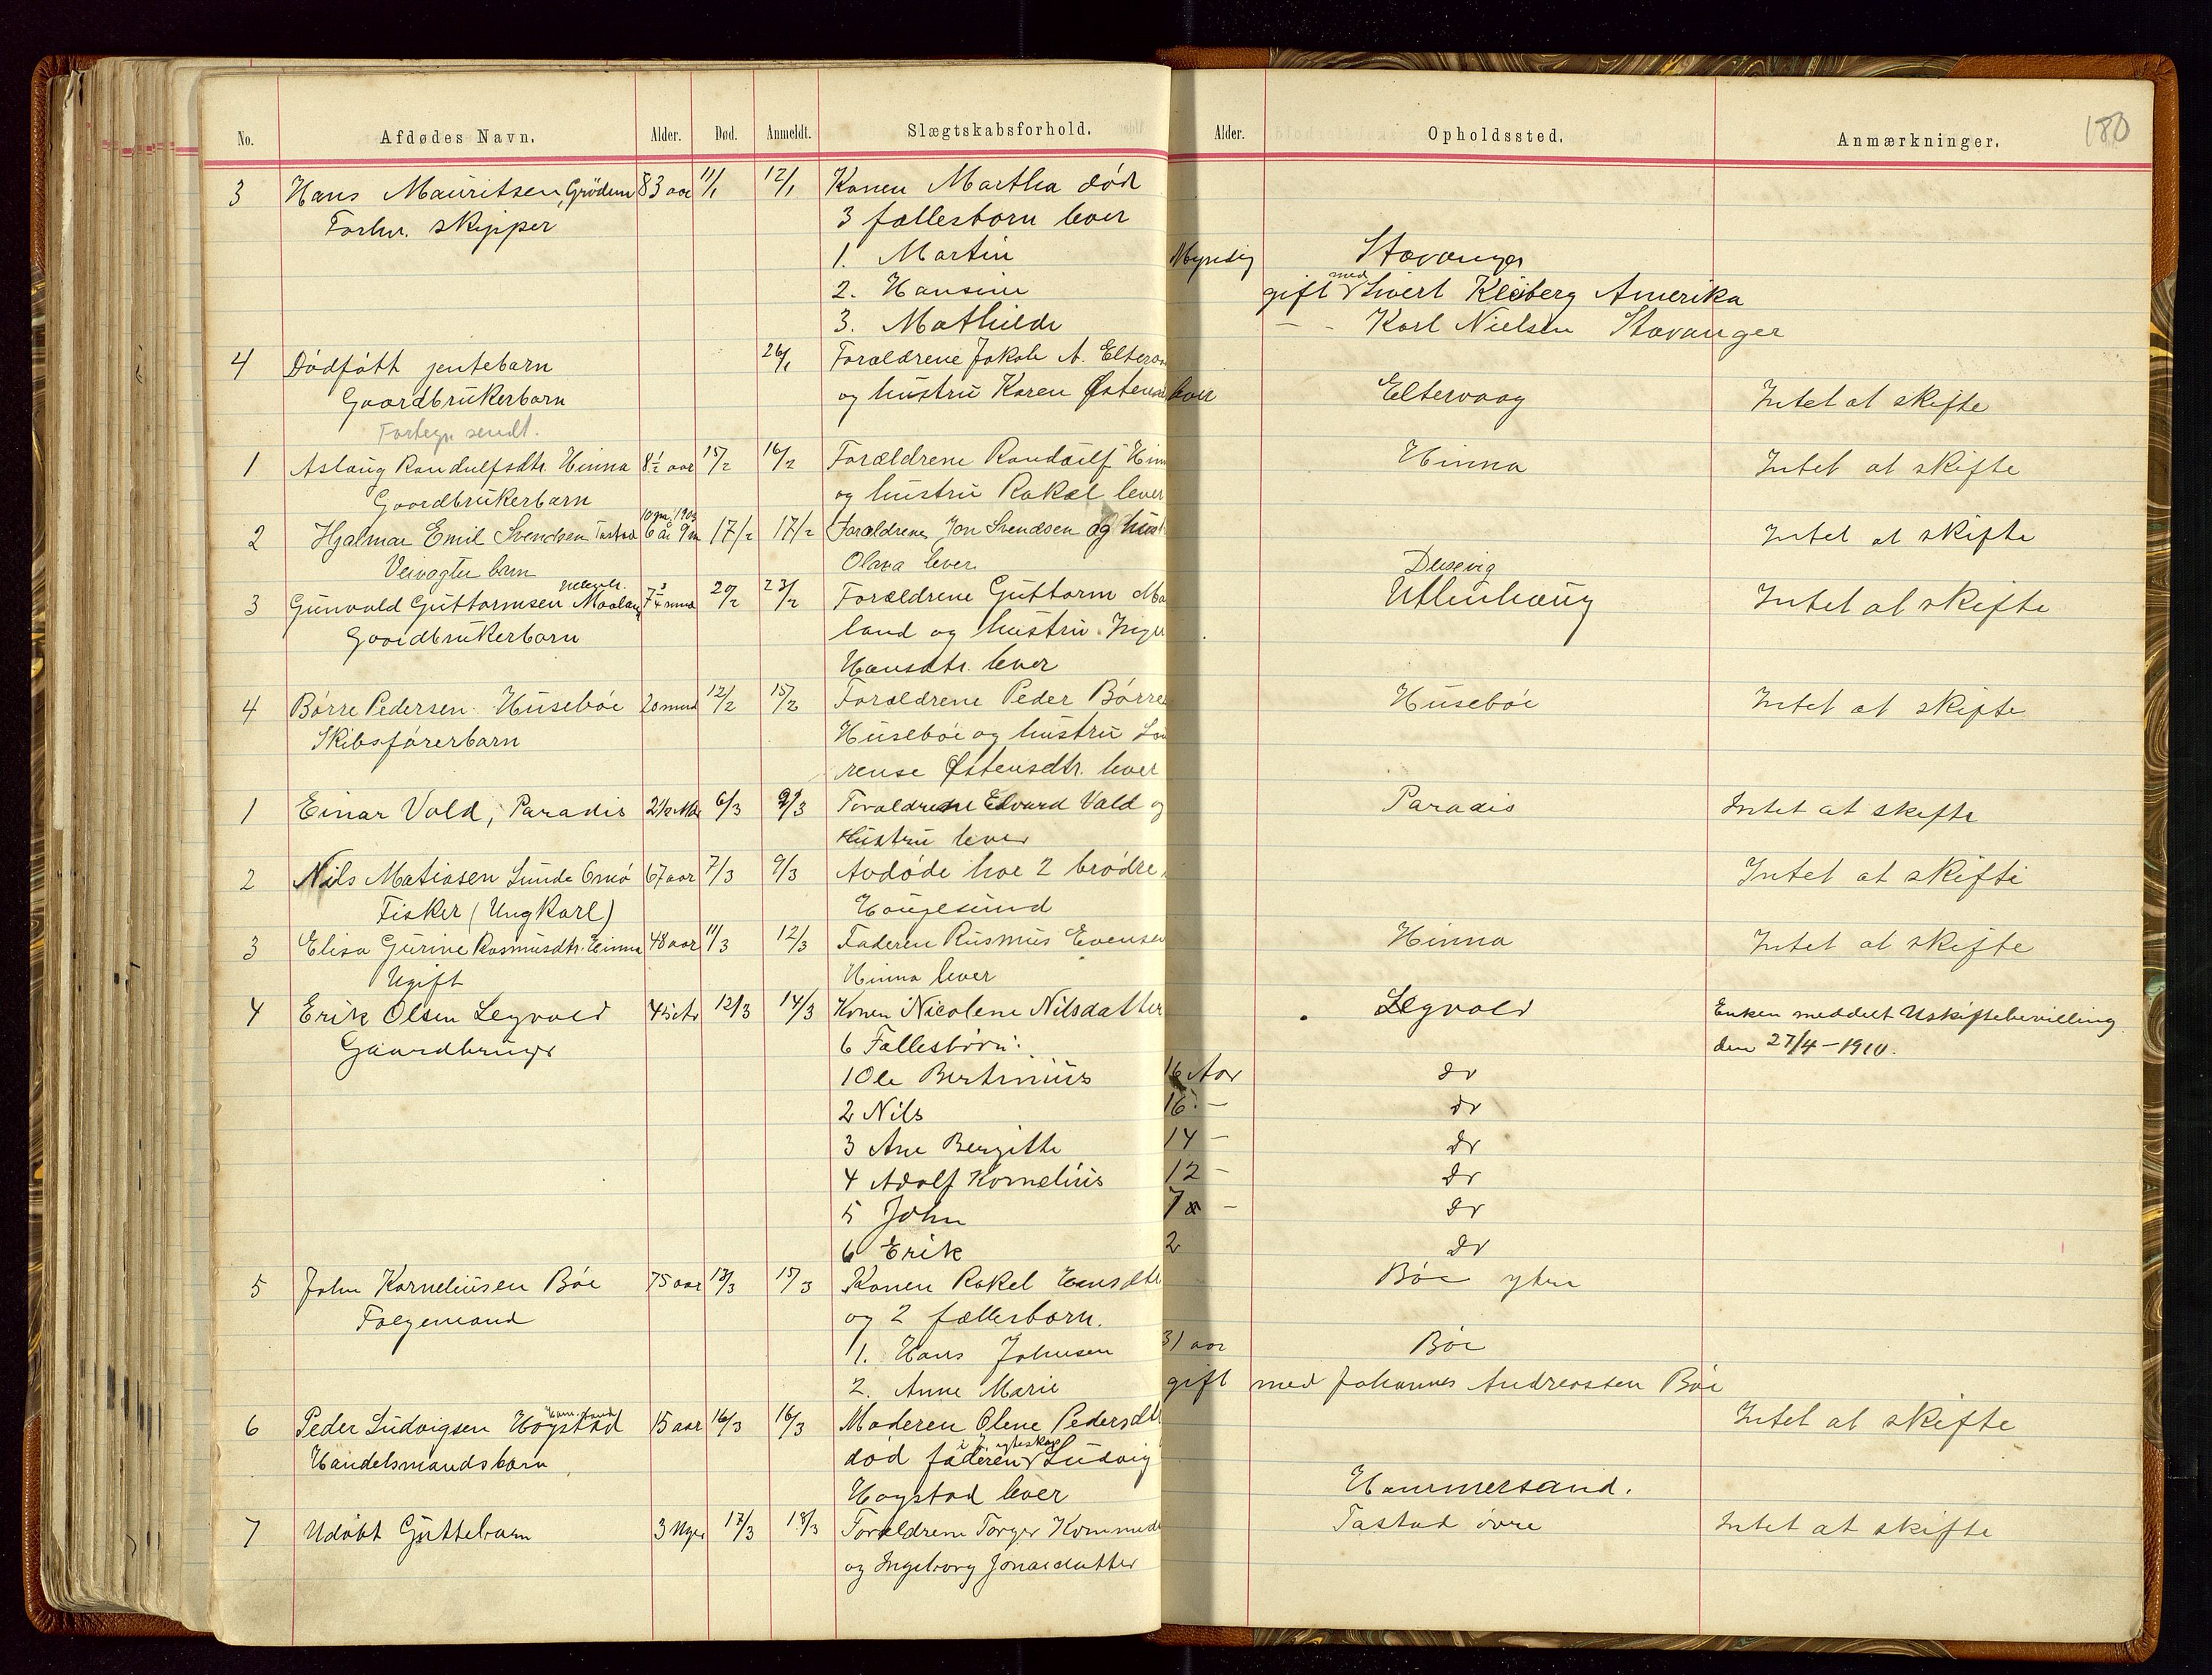 180
No. Afdødes Navn. Alder. Død. Anmeldt. Slægtskabsforhold. Alder. Opholdssted. Anmærkninger.
3 Hans Mauritsen, Grödem 83 aar 11/1 12/1 Konen Martha död
Forhv. skipper 3 fællesbarn lever
1. Martin Myndig Stavanger
2. Hansine gift med Sivert Kleiberg Amerika
3. Mathilde — - Karl Nielsen Stavanger
4 Dödfött jentebarn 26/1 Forældrene Jakob A. Eltervaa
Gaardbrukerbarn og hustru Karen Östensd lever Eltervaag Intet at skifte
Fortegn sendt.
1 Aslaug Randulfsdtr. Hinna 8½ aar 15/2 16/2 Forældrene Randulf Hinn Hinna Intet at skifte
Gaardbrukerbarn og hustru Rakel lever
2 Hjalmar Emil Svendsen Tastad 6 år 9 m 17/2 17/2 Forældrene Jon Svendsen og hust Intet at skifte
Veivogter barn Olana lever
3 Gunvald Guttormsen Maaland 20/2 23/2 Forældrene Guttorm Maa Dusevig Ullenhaug Intet at skifte
Gaardbrukerbarn land og hustru Inger
Hansdtr. lever
4 Börre Pedersen Huseböe 20 mnd 12/2 15/2 Forældrene Peder Börre Huseböe Intet at skifte
Skibsförerbarn Huseböe og hustru Lau
rense Östensdtr. lever
1 Einar Vold, Paradis 2½ Mdr 6/3 9/3 Forældrene Edvard Vald og Paradis Intet at skifte
Hustru lever
2 Nils Matiasen Lunde Omö 67 aar 7/3 9/3 Avdöde har 2 brödre Intet at skifte
Fisker (Ungkarl) Haugesund
3 Elisa Gurine Rasmusdtr. Hinna 48 aar 11/3 12/3 Faderen Rasmus Evensen Hinna Intet at skifte
Ugift Hinna lever
4 Erik Olsen Legvold 45 år 12/3 14/3 Konen Nicolene Nilsdatter Legvold Enken meddelt Uskiftebevilling
Gaardbruger 6 Fællesbörn: den 27/4-1910.
1 Ole Bertinius 16 Aar do
2 Nils 16 - do
3 Ane Bergitte 14 - do
4 Adolf Kornelius 12 - do
5 John 7 - do
6 Erik 2 do
5 John Korneliusen Böe 75 aar 13/3 15/3 Konen Rakel Hansdtr Böe ytre
Folgemand og 2 fællesbarn.
1. Hans Johnsen 31 aar Böe
2. Anne Marie gift med Johannes Andreassen Böe
6 Peder Ludvigsen Hogstad 15 aar 16/3 16/3 Moderen Olene Pedersdtr Intet at skifte
Handelsmandsbarn död faderen i 2. egteskap Ludvig
Hogstad lever Hammersand.
7 Udöbt Guttebarn 3 Uger 17/3 18/3 Forældrene Torger Kommeda Tastad övre Intet at skifte
og Ingeborg Jonasdatter